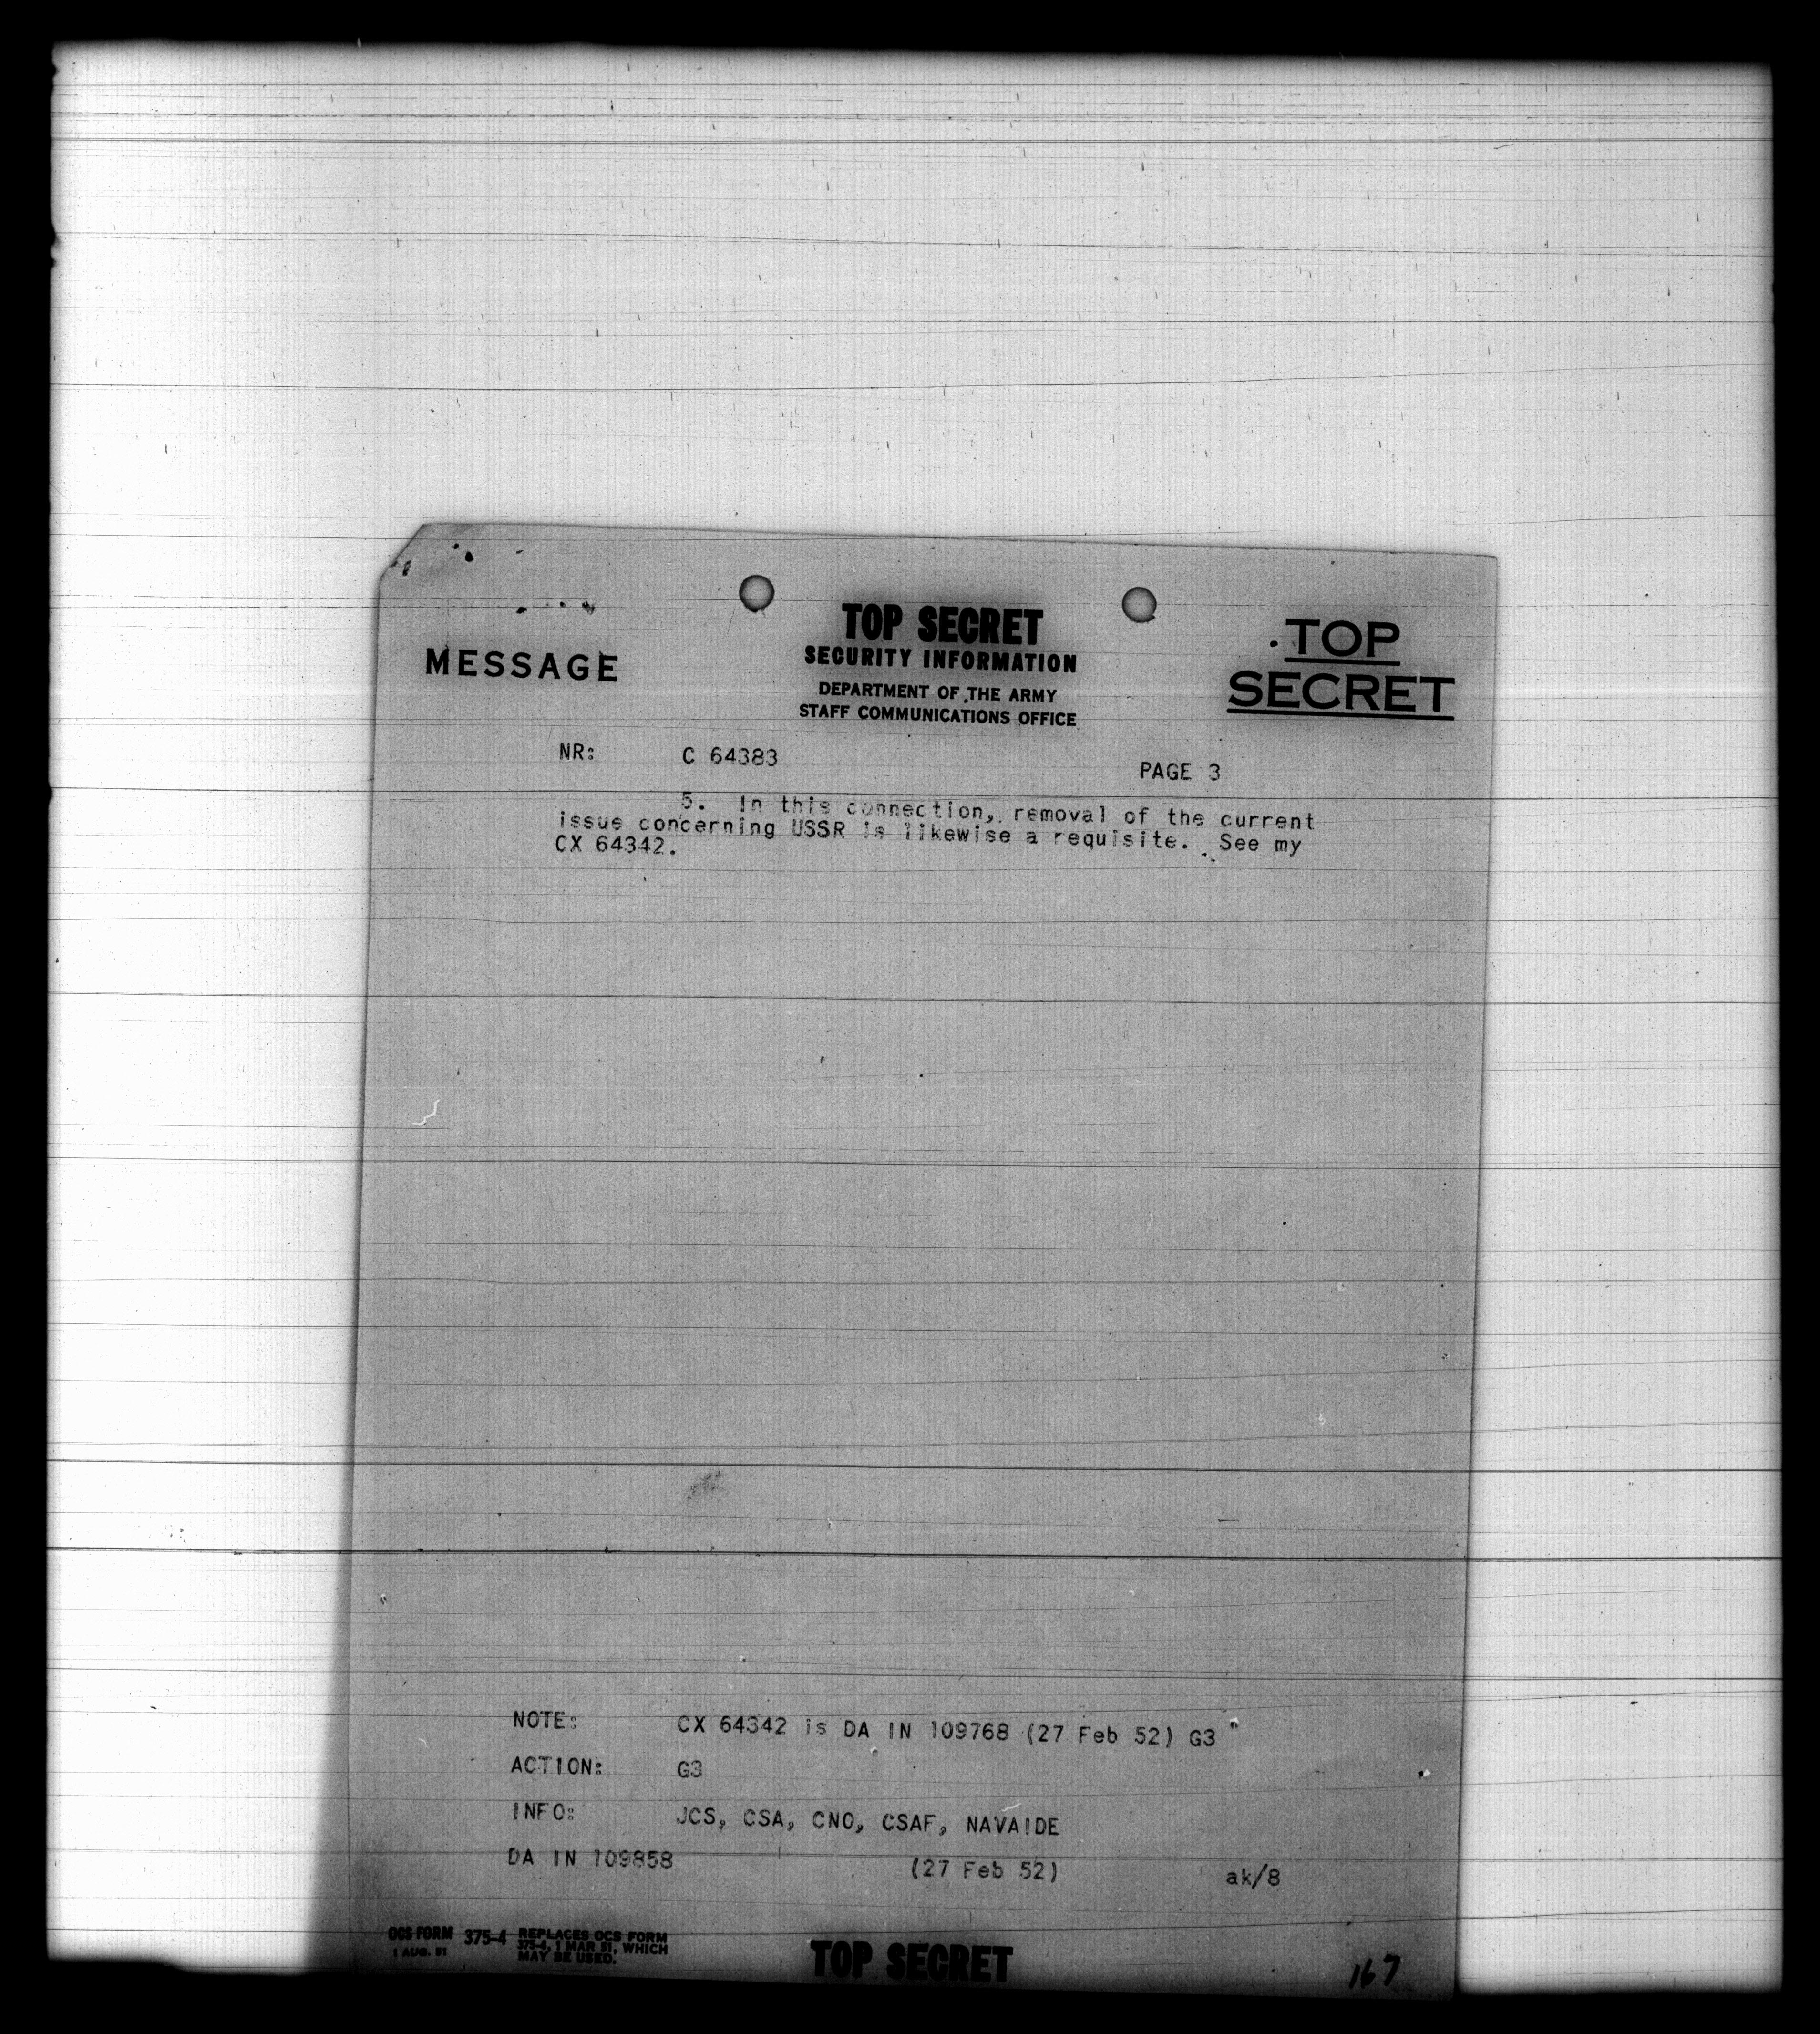 TOP SECRET
SECURITY INFORMATION
MESSAGE
DEPARTMENT OF THE ARMY
STAFF COMMUNICATIONS OFFICE
TOP
SECRET
NR: C 64383 PAGE 3
5. In this connection, removal of the current
issue concerning USSR is likewise a requisite. See my
CX 64342.
NOTE: CX 64342 is DA IN 109768 (27 Feb 52) G3
ACTION: G3
INFO: JCS, CSA, CNO, CSAF, NAVAIDE
DA IN 109858 (27 Feb 52) ak/8
OCS FORM 375-4 REPLACES OCS FORM
1 AUG. 51 375-4, 1 MAR 51, WHICH
MAY BE USED.
TOP SECRET
167